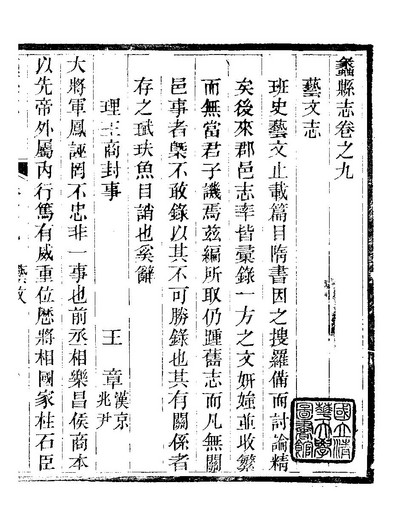 蠡縣志卷之九
藝文志
班史藝文止載篇目隋書因之搜羅備而討論精
矣後來郡邑志率皆彙錄一方之文妍媸並收繁
而無當君子譏焉茲編所取仍踵舊志而凡無關
邑事者槩不敢錄以其不可勝錄也其有關係者
存之珷玞魚目誚也奚辭
理王商封事
王章漢京兆尹
大將軍鳳誣罔不忠非一事也前丞相樂昌侯商本
以先帝外屬內行篤有威重位歷將相國家柱石臣
藝文
國立清華大學圖書館